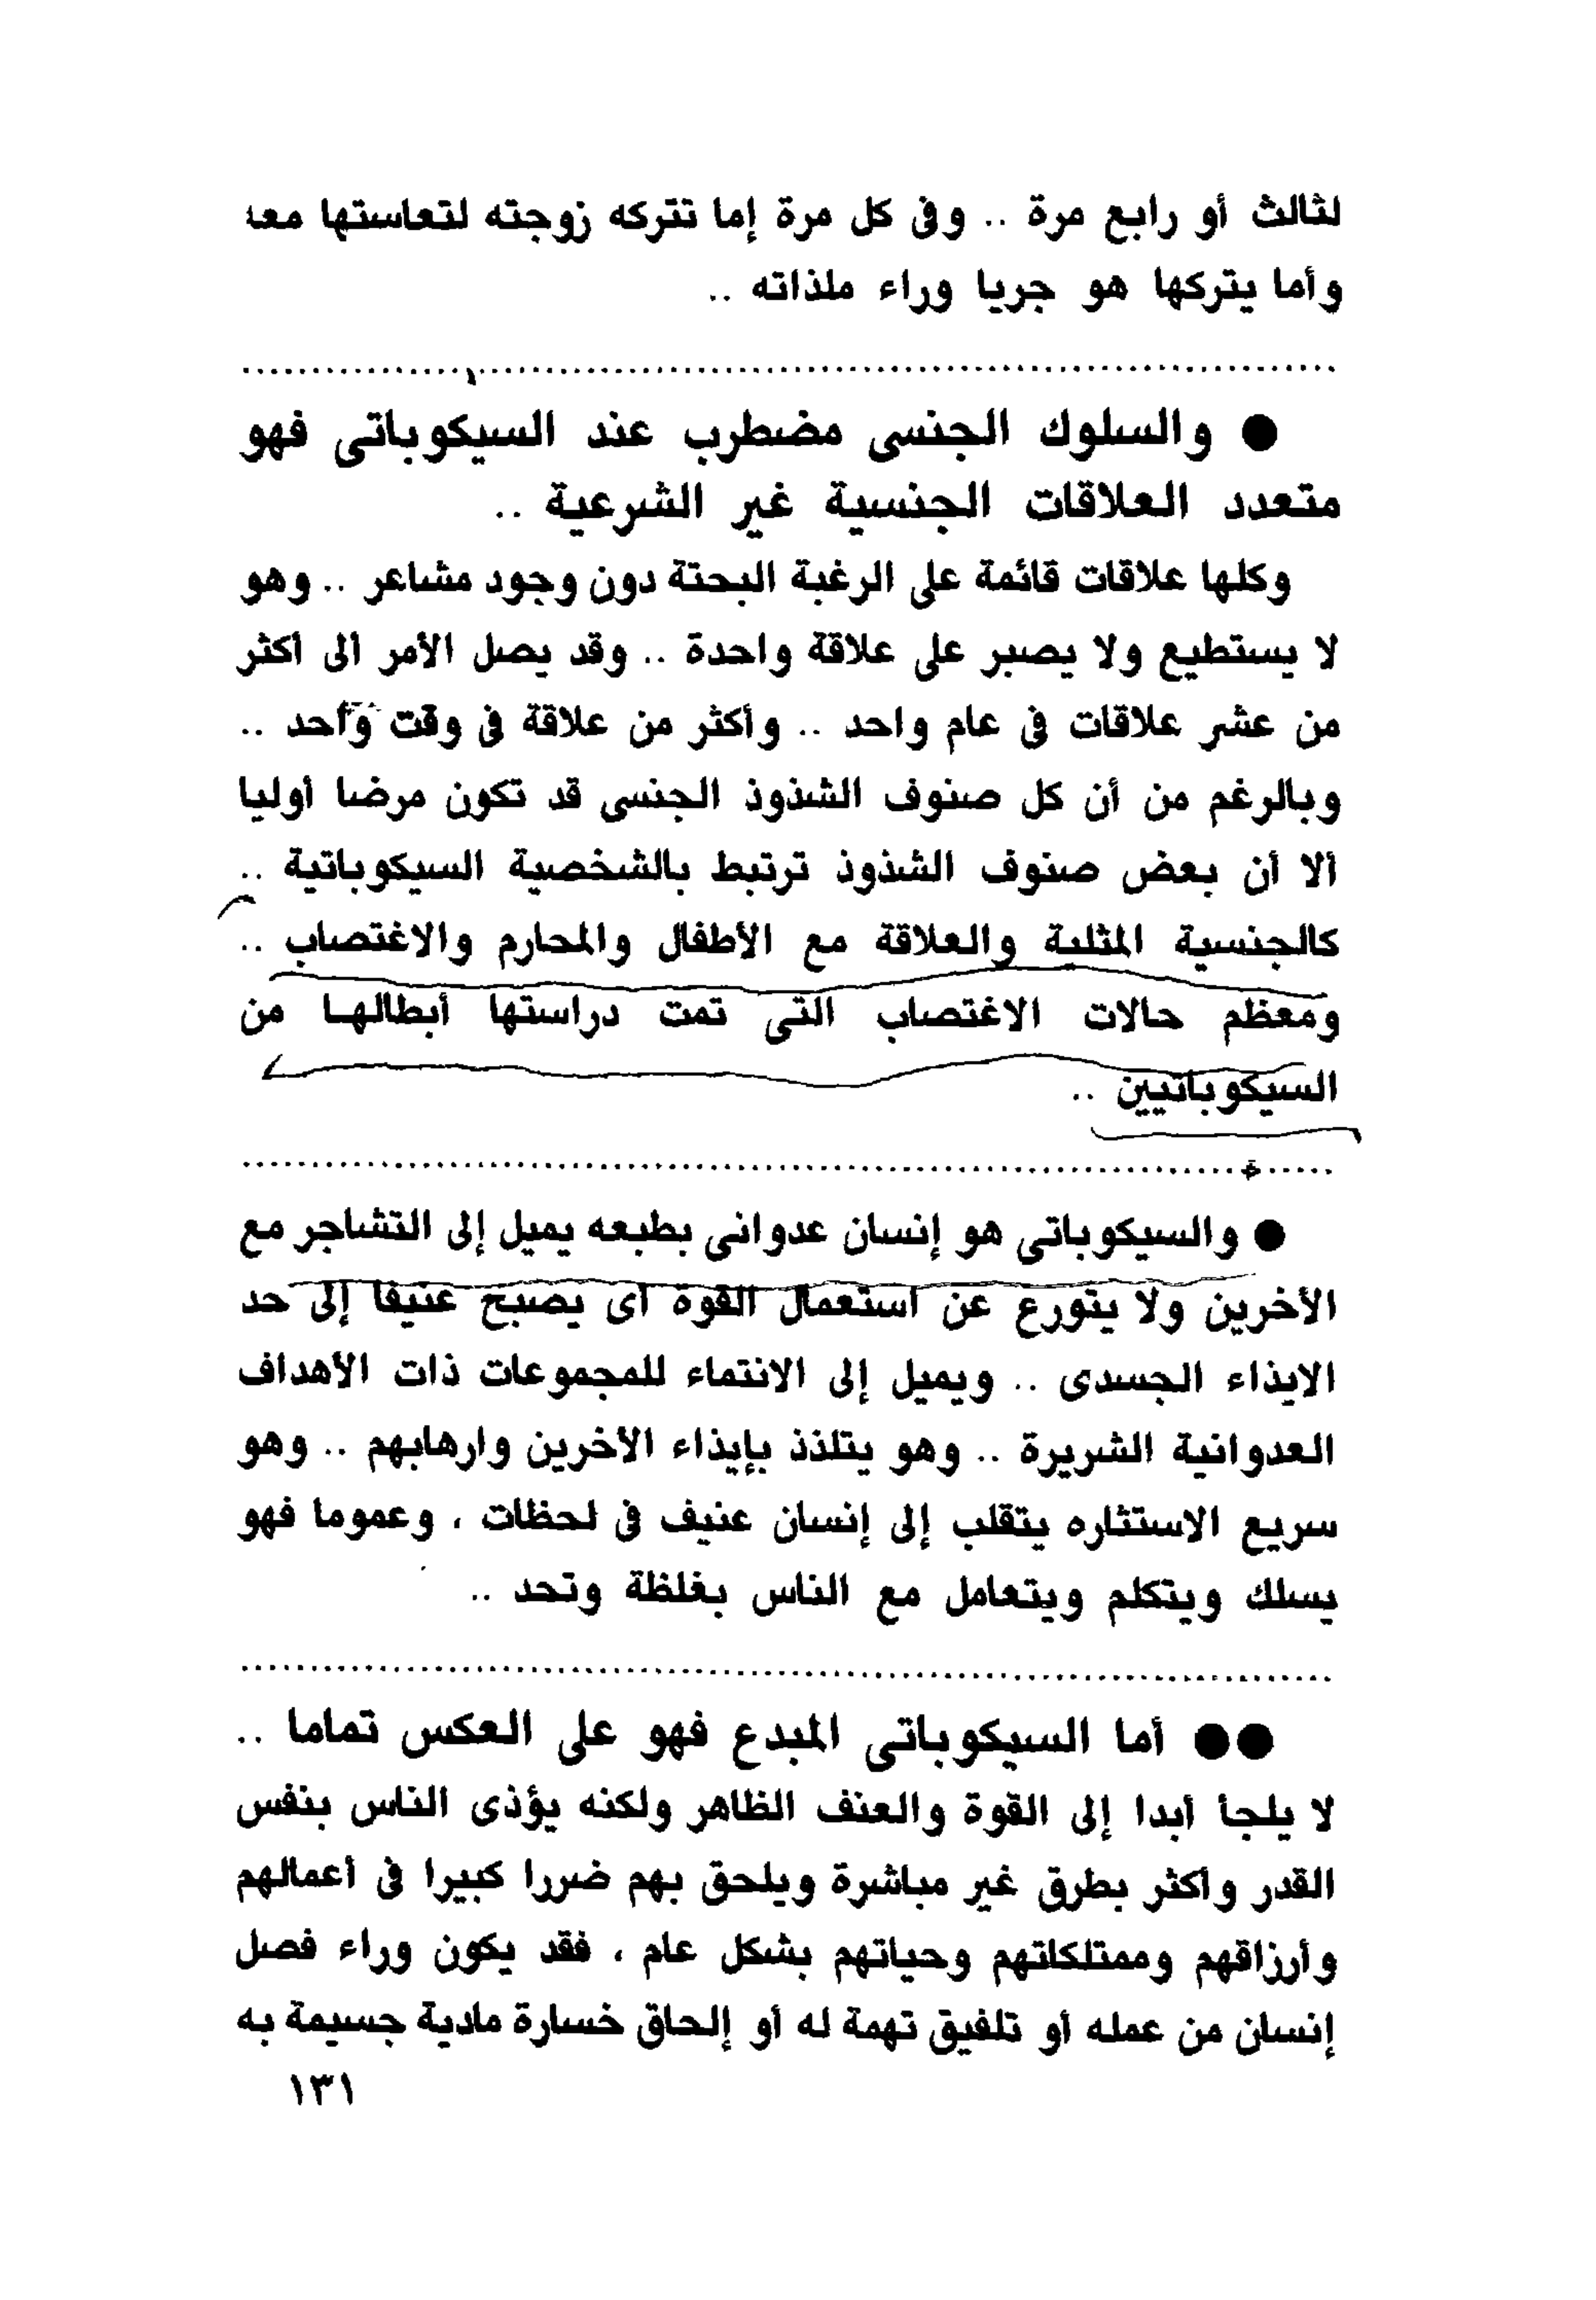 لثالث أو رابع مرة .. وفى كل مرة إما تتركه زوجته لتعاستها معه
وأما يتركها هو جريا وراء ملذاته ..
● والسلوك الجنسى مضطرب عند السيكوباتى فهو
متعدد العلاقات الجنسية غير الشرعية ..
وكلها علاقات قائمة على الرغبة البحتة دون وجود مشاعر .. وهو
لا يستطيع ولا يصبر على علاقة واحدة .. وقد يصل الأمر الى أكثر
من عشر علاقات فى عام واحد .. وأكثر من علاقة فى وقت واحد ..
وبالرغم من أن كل صنوف الشذوذ الجنسى قد تكون مرضا أوليا
ألا أن بعض صنوف الشذوذ ترتبط بالشخصية السيكوباتية ..
كالجنسية المثلية والعلاقة مع الأطفال والمحارم والاغتصاب ..
ومعظم حالات الاغتصاب التى تمت دراستها أبطالها من
السيكوباتيين ..
● والسيكوباتى هو إنسان عدوانى بطبعه يميل إلى التشاجر مع
الأخرين ولا يتورع عن استعمال القوة أى يصبح عنيفا إلى حد
الايذاء الجسدى .. ويميل إلى الانتماء للمجموعات ذات الأهداف
العدوانية الشريرة .. وهو يتلذذ بإيذاء الأخرين وارهابهم .. وهو
سريع الاستثاره يتقلب إلى إنسان عنيف فى لحظات ، وعموما فهو
يسلك ويتكلم ويتعامل مع الناس بغلظة وتحد ..
●● أما السيكوباتى المبدع فهو على العكس تماما ..
لا يلجأ أبدا إلى القوة والعنف الظاهر ولكنه يؤذى الناس بنفس
القدر وأكثر بطرق غير مباشرة ويلحق بهم ضررا كبيرا فى أعمالهم
وأرزاقهم وممتلكاتهم وحياتهم بشكل عام ، فقد يكون وراء فصل
إنسان من عمله أو تلفيق تهمة له أو إلحاق خسارة مادية جسيمة به
١٣١